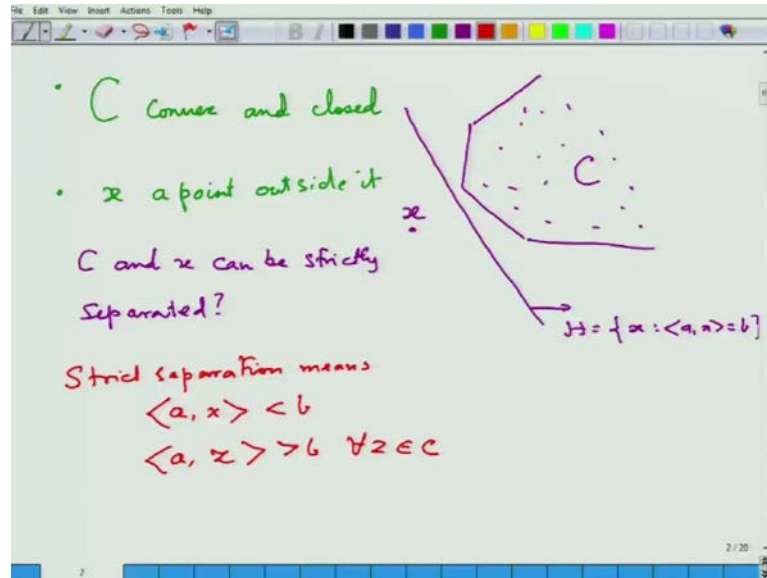 File Edit View Insert Actions Tools Help
B I
• C convex and closed
• x a point outside it
C and x can be strictly
separated?
Strict separation means
<a, x> < b
<a, z> > b ∀z ∈ C
C
x
H = { x : <a, x> = b }
2 / 20
2